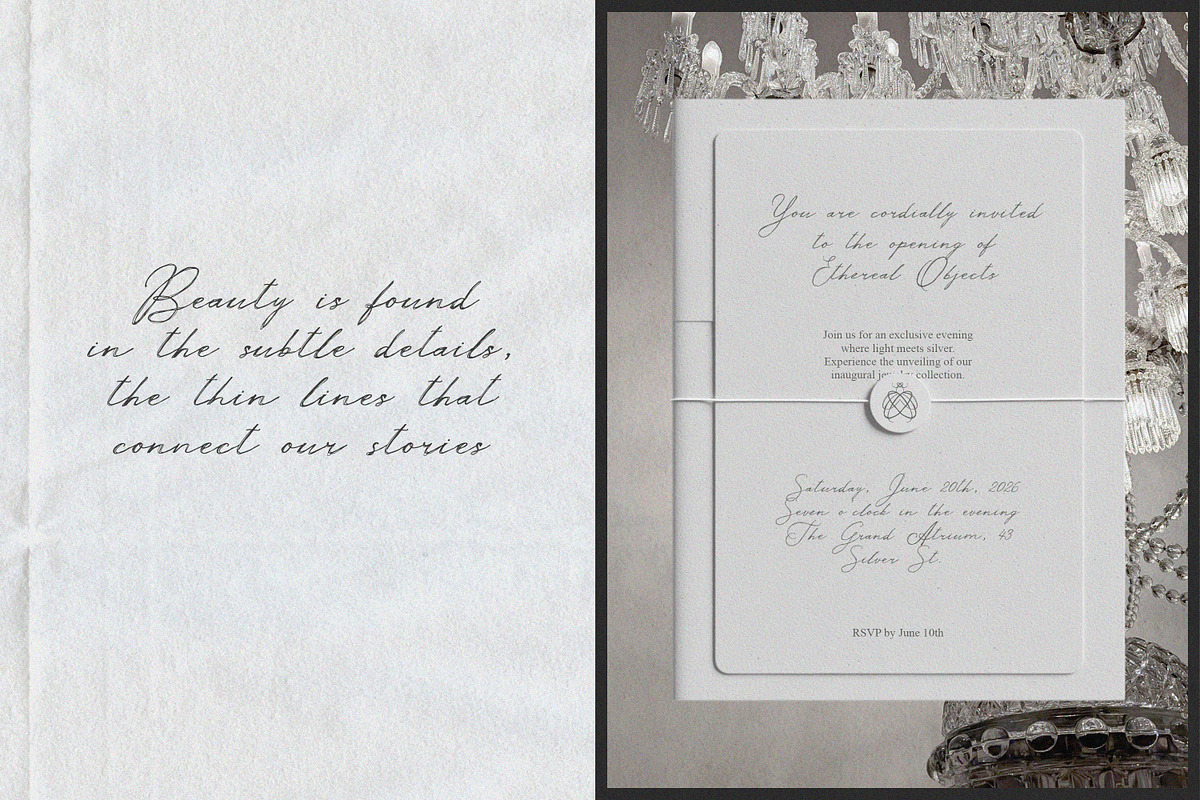 Beauty is found
in the subtle details,
the thin lines that
connect our stories
You are cordially invited
to the opening of
Ethereal Objects
Join us for an exclusive evening
where light meets silver.
Experience the unveiling of our
inaugural collection.
Saturday, June 20th, 2026
Seven o clock in the evening
The Grand Atrium, 43
Silver St.
RSVP by June 10th